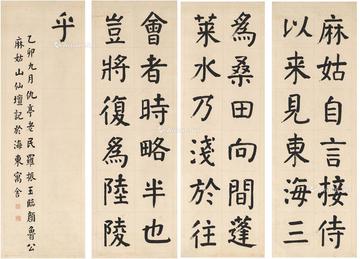 麻姑自言接待
以来見東海三
爲桑田向間蓬
萊水乃淺於往
會者時略半也
豈將復爲陸陵
乎
乙卯九月仇亭老民羅振玉臨顏魯公
麻姑山仙壇記於海東寓舍